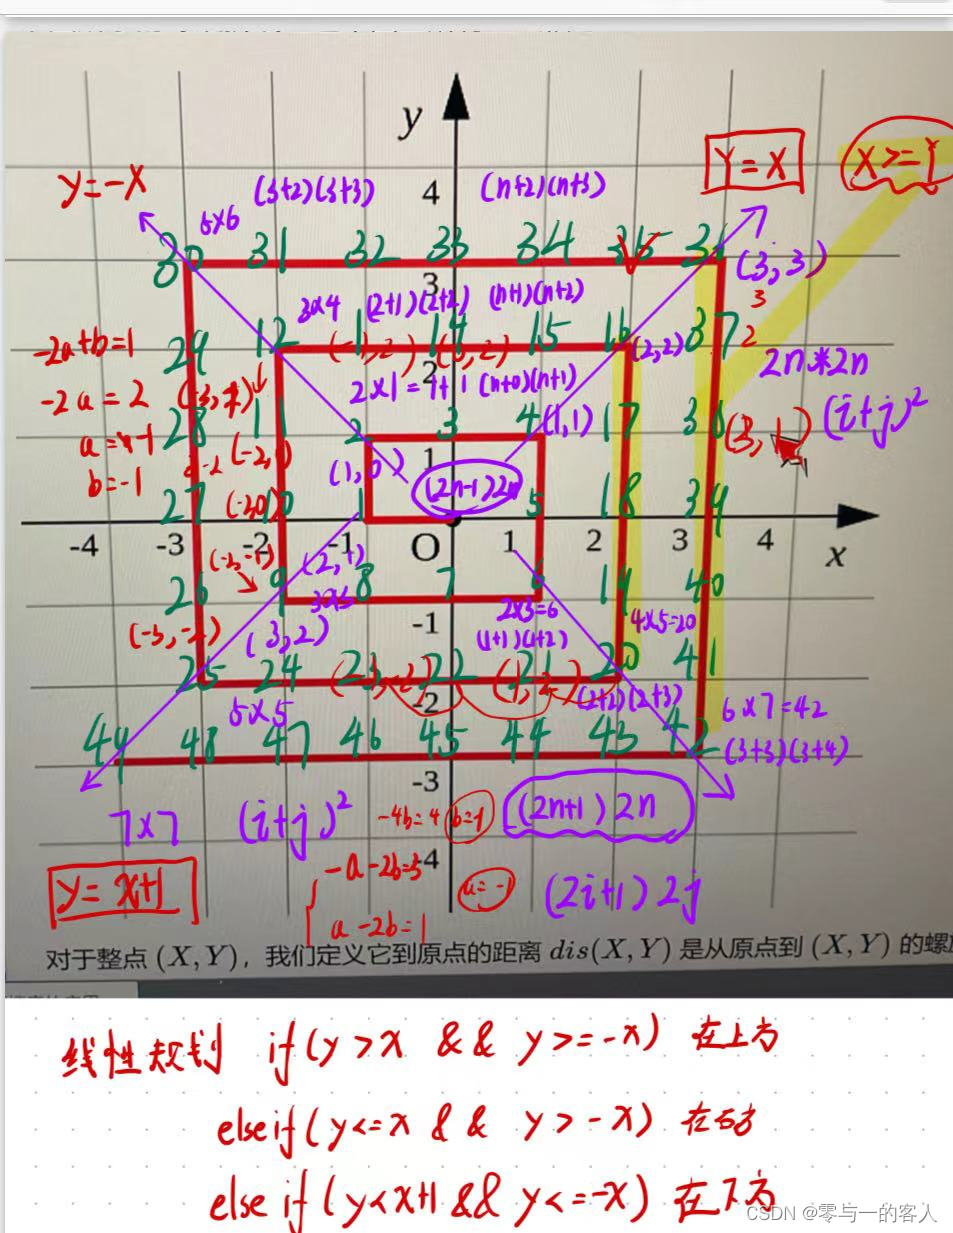 y
Y=X
X>=Y
y=-x
(3+2)(3+3)
4
(n+2)(n+3)
5x6
30 31 32 33 34 35 36
(3,3)
3
3x4 (2+1)(2+2) (n+1)(n+2)
3
-2a+b=1
29 12 14 15 16 37
(2,2)
2
2n*2n
2
2x1=1+1 (n+0)(n+1)
-2a=2
28 11 2 3 4 (1,1) 17
(3,1)
(i+j)²
a=-1
b=-1
1
(1,0)
(2n-1)2n
27 10 1 5 18 39
-4 -3 -2 -1 O 1 2 3 4 x
26 9 8 7 6 19 40
(2,1)
3x3
2x3=6
4x5=20
(-3,-2)
(3,2)
-1
(1+1)(1+2)
25 24 23 22 21 20 41
-2
(2+2)(2+3)
6x7=42
5x5
44 48 47 46 45 44 43 42
(3+3)(3+4)
-3
7x7
(i+j)²
-4b=4
b=-1
(2n+1)2n
y=x+1
-4
a-2b=1
(2i+1)2j
对于整点 (X, Y)，我们定义它到原点的距离 dis(X, Y) 是从原点到 (X, Y) 的螺
线性规划 if(y>x && y>=-x) 在上方
else if(y<=x && y>-x) 在右方
else if(y<x+1 && y<=-x) 在下方
CSDN @零与一的客人